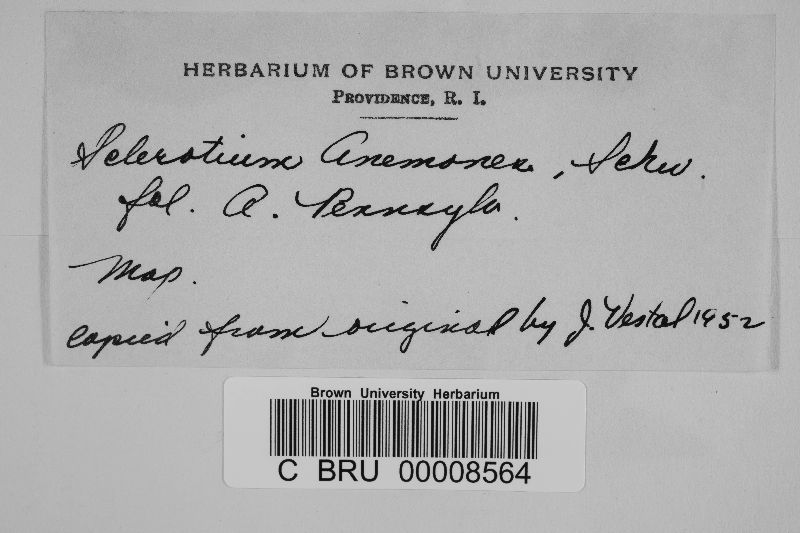 HERBARIUM OF BROWN UNIVERSITY
PROVIDENCE, R. I.
Sclerotium Anemones, Schw.
fol. A. Pennsylv.
Map.
copied from original by J. Vestal 1952
Brown University Herbarium
C BRU 00008564